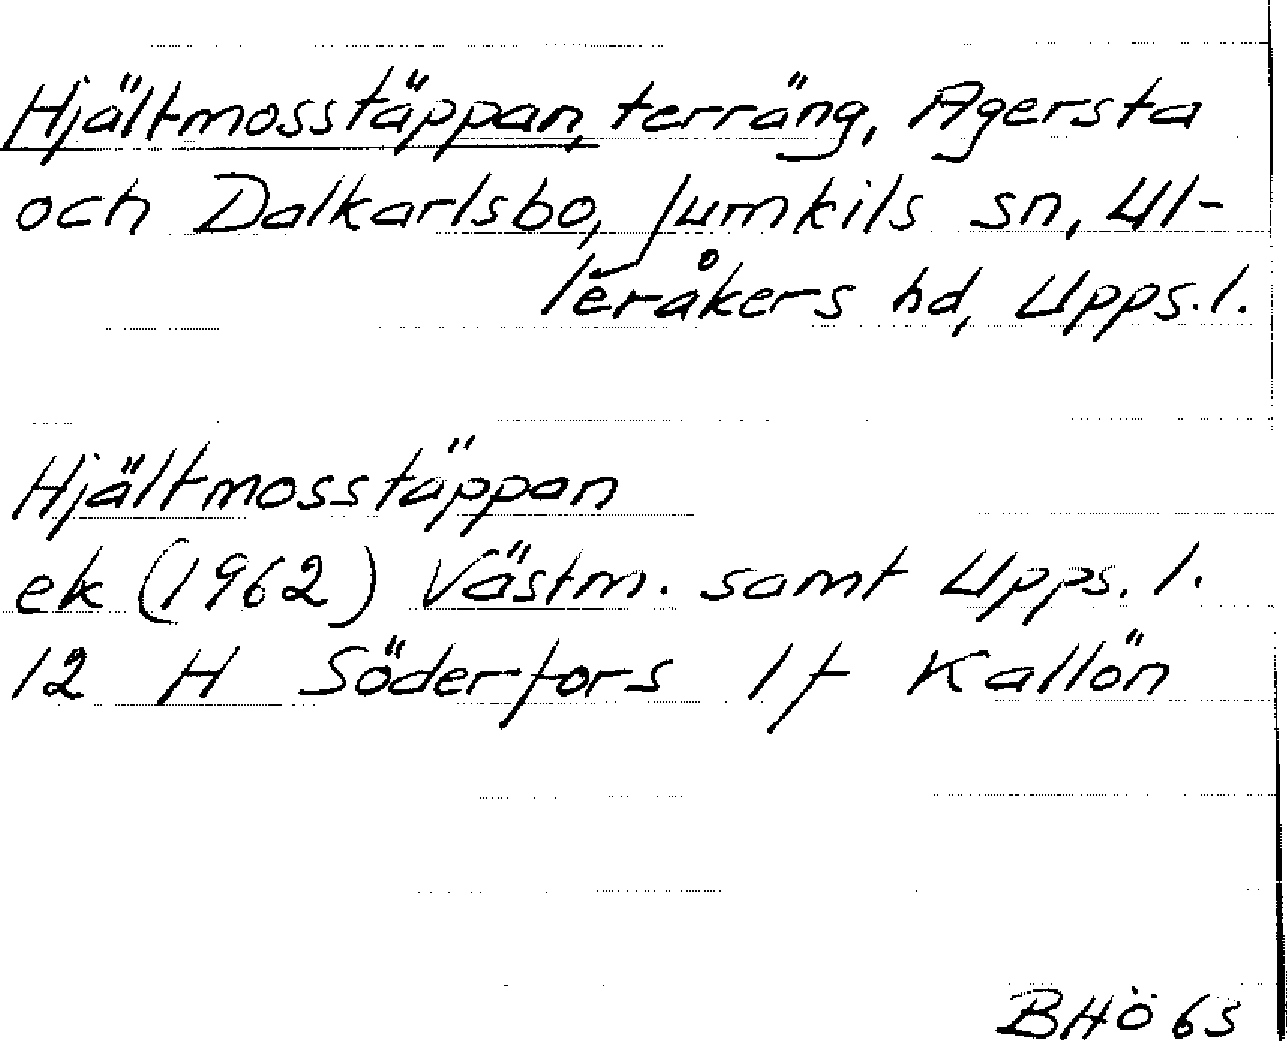 Hjältmosstäppan, terräng, Agersta
och Dalkarlsbo, Jumkils sn, Ul-
leråkers hd, Upps.l.
Hjältmosstäppan
ek (1962) Västm. samt Upps. l.
12 H Söderfors 1f Kallön
BHÖ 63